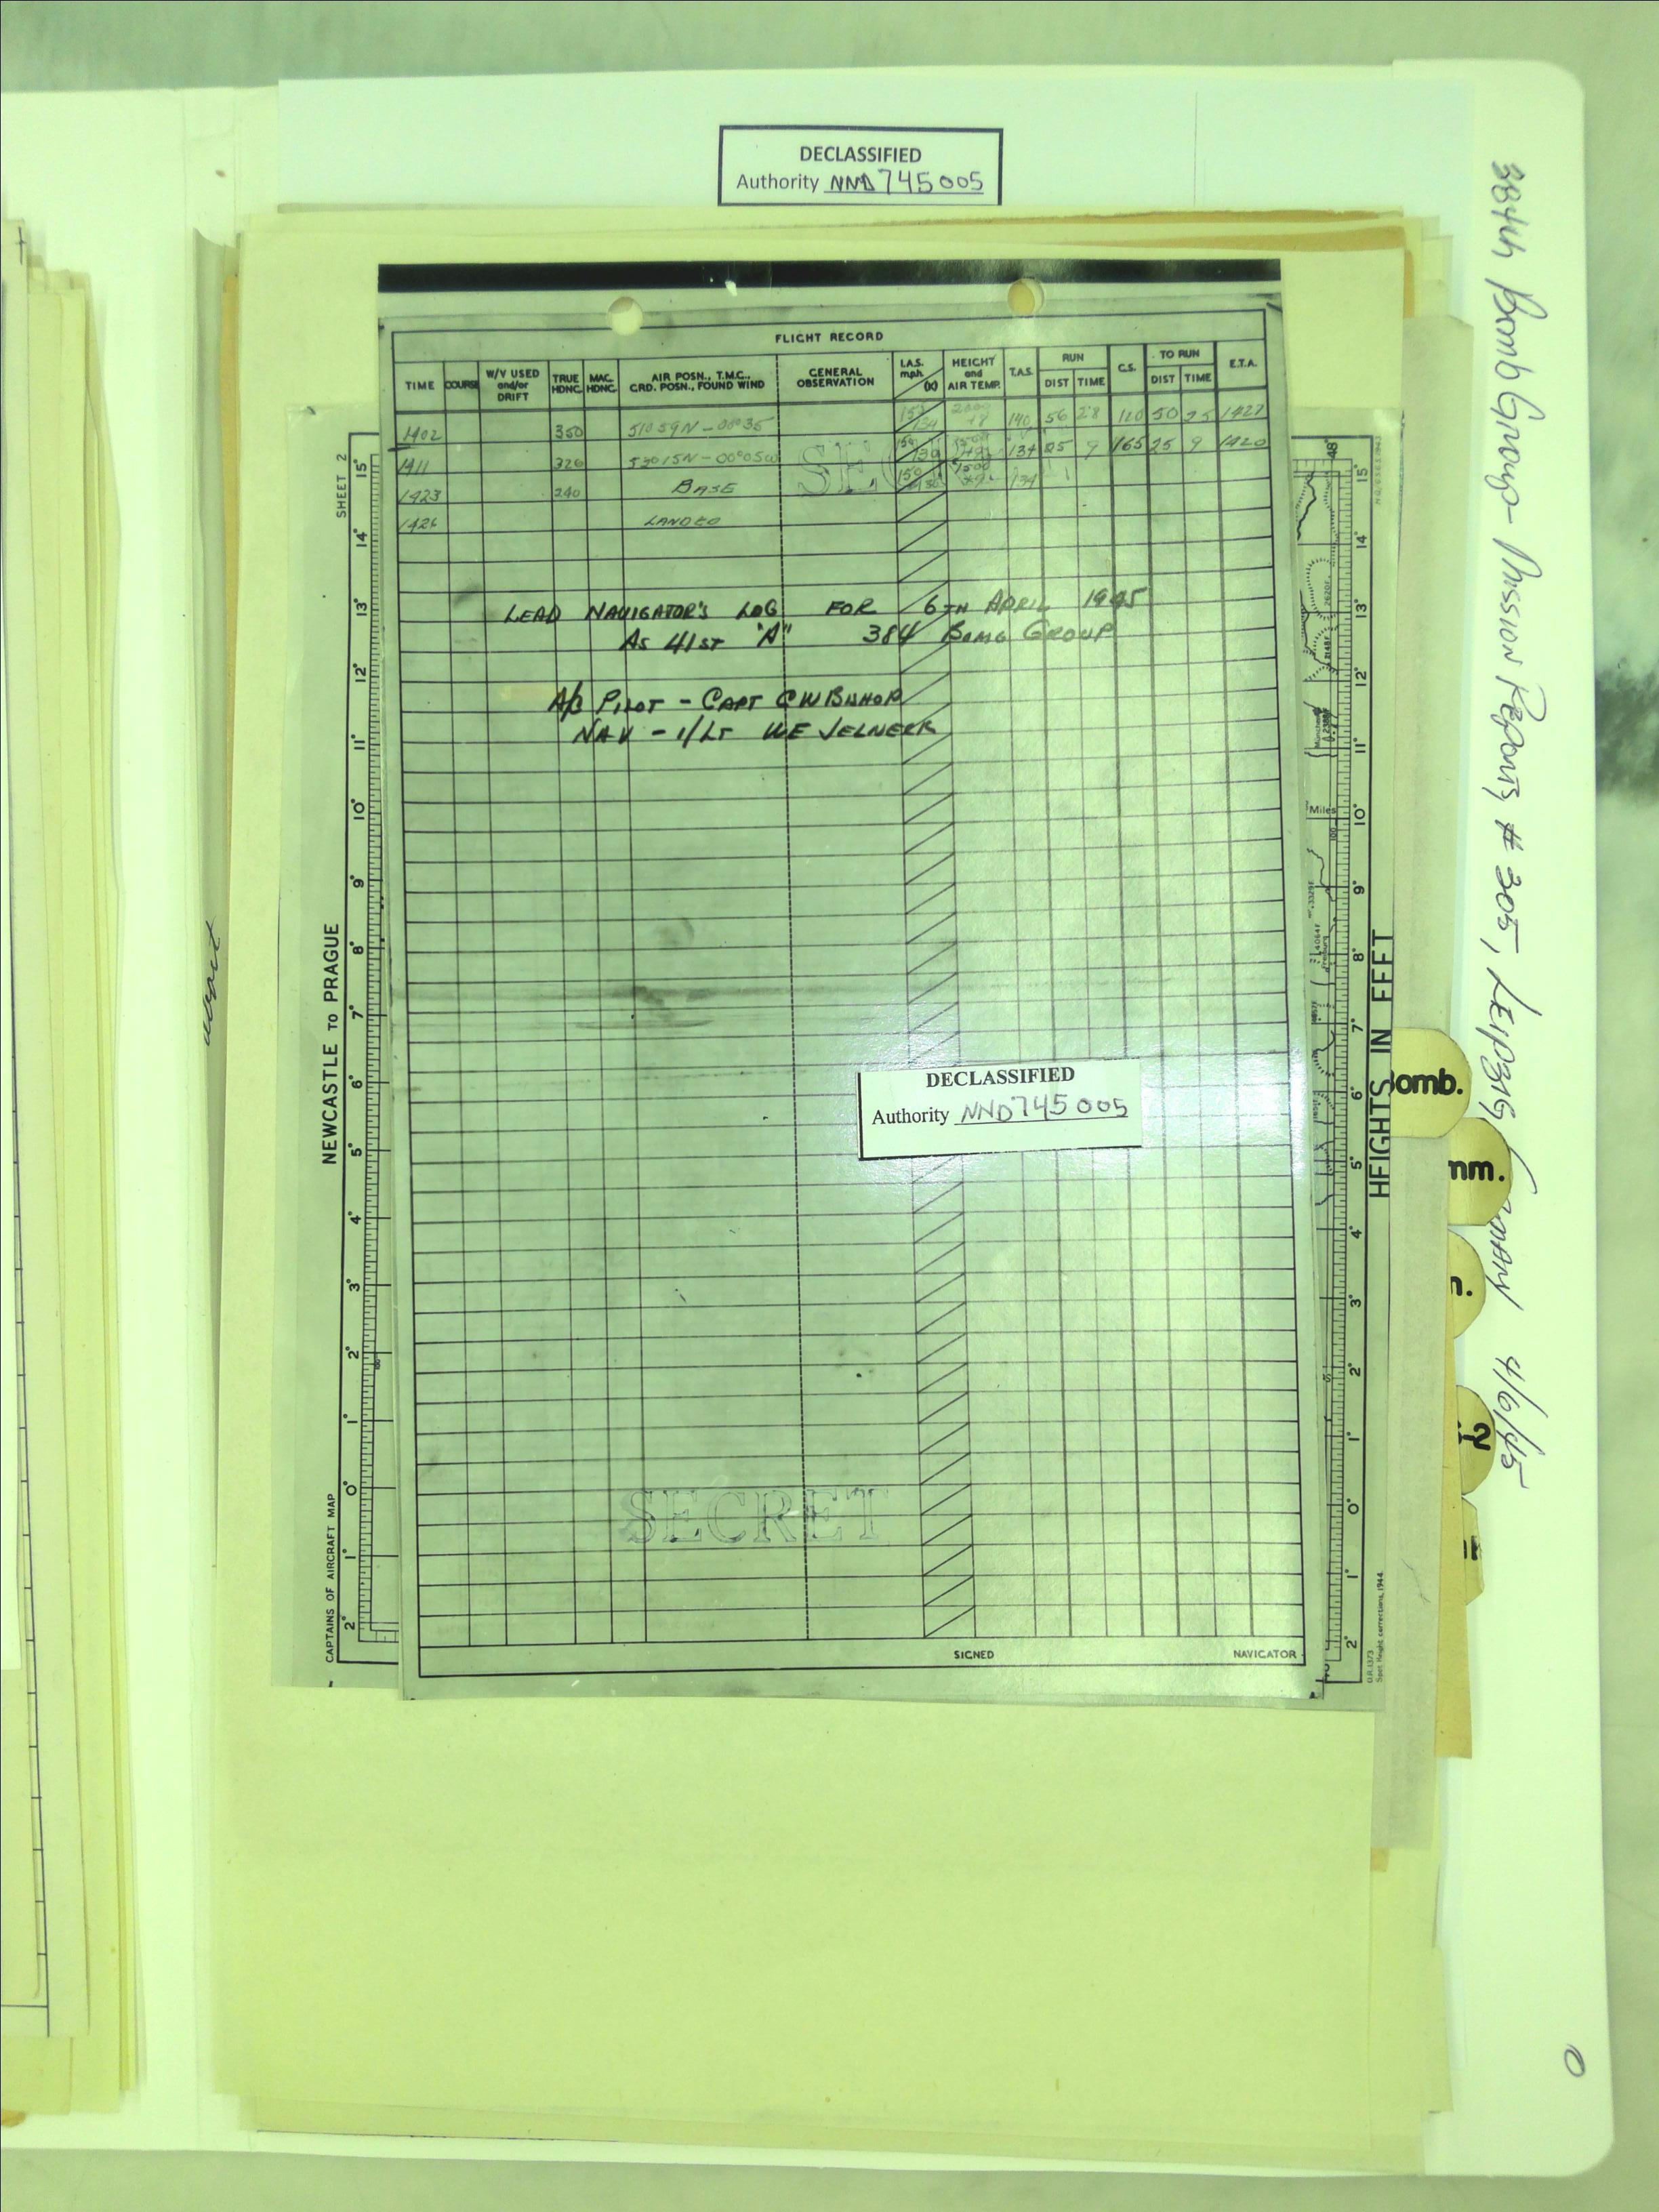 DECLASSIFIED
Authority NND 745005
384th Bomb Group - Mission Reports, # 305, Leipzig 4/6/45
FLIGHT RECORD
TIME COURSE W/V USED and/or DRIFT TRUE HDNG. MAG. HDNG. AIR POSN., T.M.C., GRD. POSN., FOUND WIND GENERAL OBSERVATION I.A.S. mph. (K) HEIGHT and AIR TEMP. T.A.S. RUN DIST TIME C.S. TO RUN DIST TIME E.T.A.
1402 350 140 56 28 120 50 25 1427
1411 326 134 25 9 165 25 9 1420
1423 240 BASE 134
1426 LANDED
SECRET
LEAD NAVIGATOR'S LOG FOR 6TH APRIL 1945
AS 41ST "A" 384 BOMB GROUP
A/C PILOT - CAPT C W BISHOP
NAV - 1/LT WE JELNECK
DECLASSIFIED
Authority NND 745005
SECRET
SIGNED NAVIGATOR
SHEET 2
NEWCASTLE TO PRAGUE
CAPTAINS OF AIRCRAFT MAP
15° 14° 13° 12° 11° 10° 9° 8° 7° 6° 5° 4° 3° 2° 1° 0° 1° 2°
48°
15° 14° 13° 12° 11° 10° 9° 8° 7° 6° 5° 4° 3° 2° 1° 0° 1° 2°
Miles
HEIGHTS IN FEET
Spot Height corrections, 1944.
omb.
mm.
n.